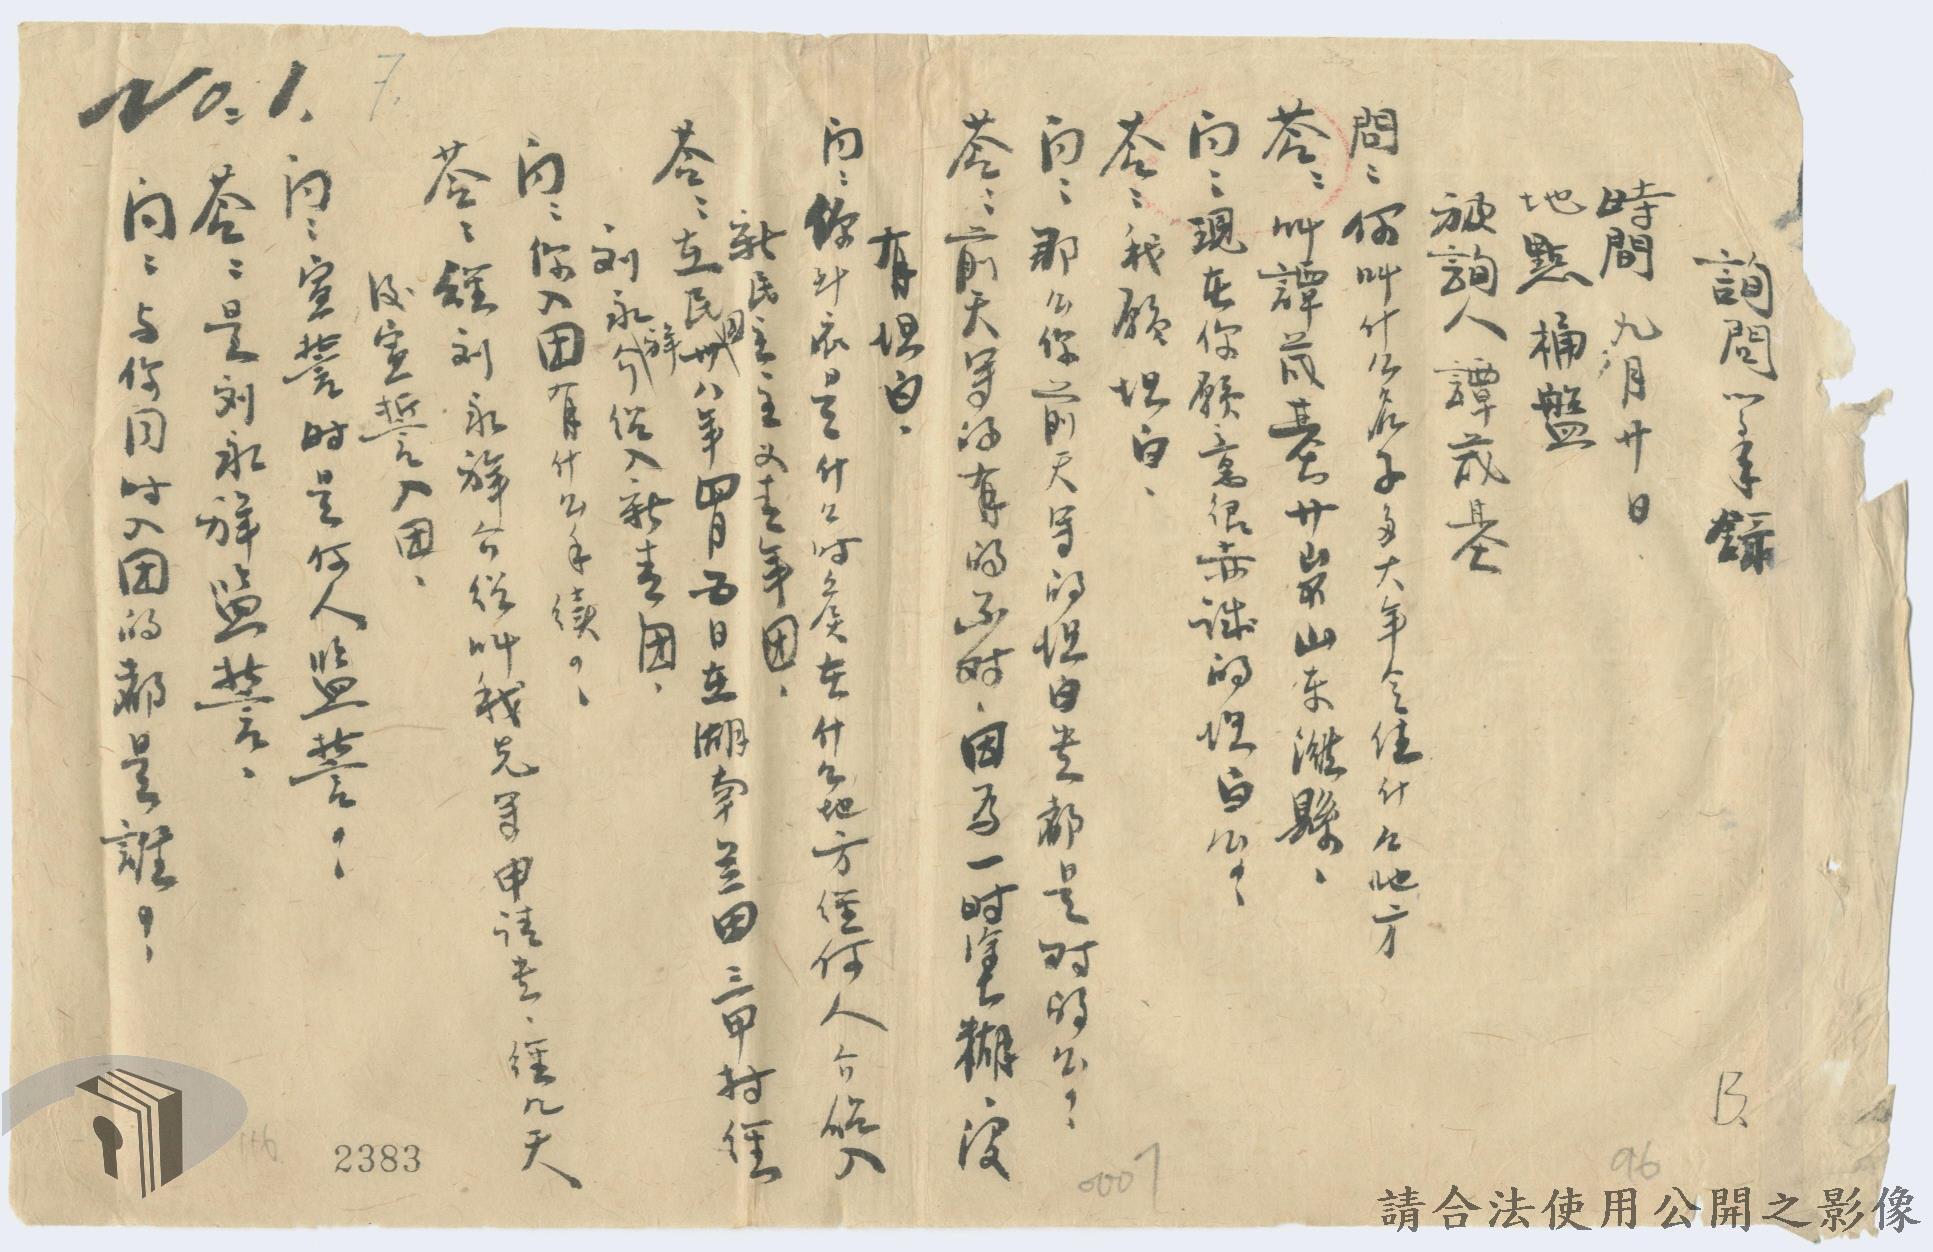 詢問筆錄
時間 九月廿日
地點 桶盤
被詢人譚茂基
問：你叫什么名子多大年令住什么地方
答：叫譚茂基廿歲山東濰縣、
问：現在你願意很赤誠的坦白么？、
答：我願坦白、
问：那么你前天写的坦白书都是对的么？、
答：前天写的有的不对、因為一时塗糊、沒
有坦白、
问：你到底是什么时候在什么地方經何人介紹入
新民主主义青年团、
答：在民国卅八年四月五日在湖南兰田三甲村經
刘永祥介紹入新青团、
问：你入团有什么手續？、
答：經刘永祥介紹叫我先写申請书、經几天
後宣誓入团、
问：宣誓时是何人监誓？、
答：是刘永祥监誓、
问：与你同时入团的都是誰？、
No:1.
7.
B
96
0007
116
2383
請合法使用公開之影像